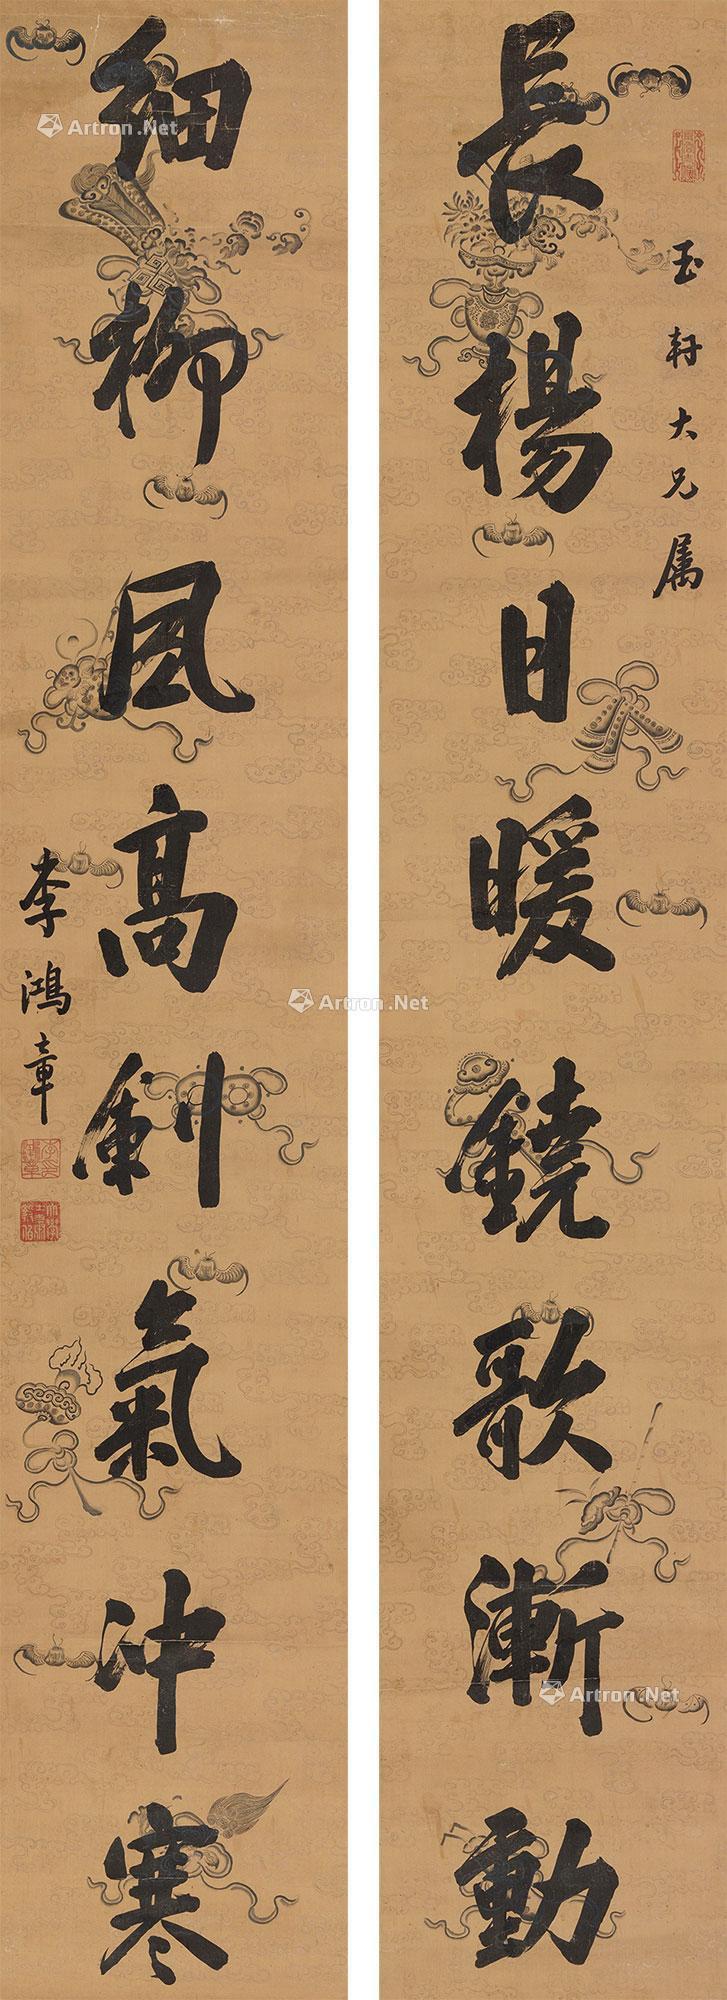 長楊日暖鐃歌漸動
玉軒大兄属
細柳風高劍氣沖寒
李鴻章
Artron.Net
Artron.Net
Artron.Net